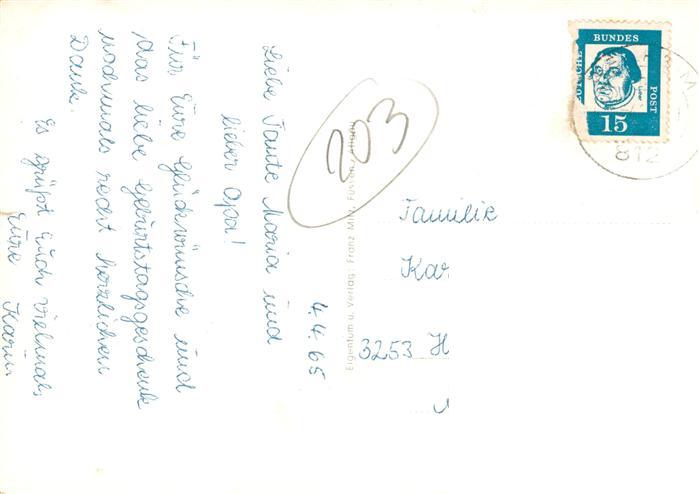 4.4.65
Liebe Tante Maria und
lieber Opa!
Für Eure Glückwünsche und
das liebe Geburtstagsgeschenk
nochmals recht herzlichen
Dank.
Es grüßt Euch vielmals,
Eure Karin
203
Eigentum u. Verlag: Franz Milz, Füssen
DEUTSCHE
BUNDES
POST
15
812
Familie
Kar
3253 H